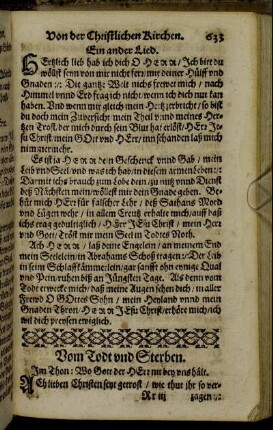 Von der Christlichen Kirchen. 633
Ein ander Lied.
HErtzlich lieb hab ich dich O HERR / Ich bitt du
wöllst senn von mir nicht fern mit deiner Hülff vnd
Gnaden :/: Die gantze Welt nichs frewet mich / nach
Himmel vnnd Erd frag ich nicht / wenn ich dich nur kan
haben. Vnd wenn mir gleich mein Hertz zerbricht / so bist
du doch mein Zuversicht / mein Theil vnnd meines Her-
tzen Trost / der mich durch sein Blut hat erlöst / HErr Je-
su Christ / mein GOtt vnd HErr / inn schanden laß mich
nimmermehr.
Es ist ja HERR dein Geschenck vnnd Gab / mein
Leib vnd Seel / vnd was ich hab / in diesem armen Leben :/:
Damit ichs brauch zum Lobe dein / zu nutz vnnd Dienst
deß Nächsten mein / wöllest mir dein Gnade geben. Be-
hüt mich HErr für falscher Lehr / deß Sathans Mord
vnd Lügen wehr / in allem Creutz erhalte mich / auff daß
ichs trag gedultiglich / HErr JEsu Christ / mein Herr
vnd Gott / Tröst mir mein Seel in Todtes Noth.
Ach HERR / laß deine Engelein / an meinem End
mein Seelelein / in Abrahams Schoß tragen :/: Der Leib
in seim Schlaffkämmerlein / gar sanfft ohn einige Qual
vnd Pein / ruhen biß an Jüngsten Tage. Als denn vom
Todt erwecke mich / daß meine Augen sehen dich / in aller
Frewd O GOttes Sohn / mein Heyland vnnd mein
Gnaden Thron / HERR JEsu Christ / erhöre mich / ich
wil dich preysen ewiglich.
Vom Todt vnd Sterben.
Im Thon: Wo Gott der HErr nit bey vns hält.
ACh lieben Christen seyt getrost / wie thut ihr so ver-
Rr iij zagen :/: